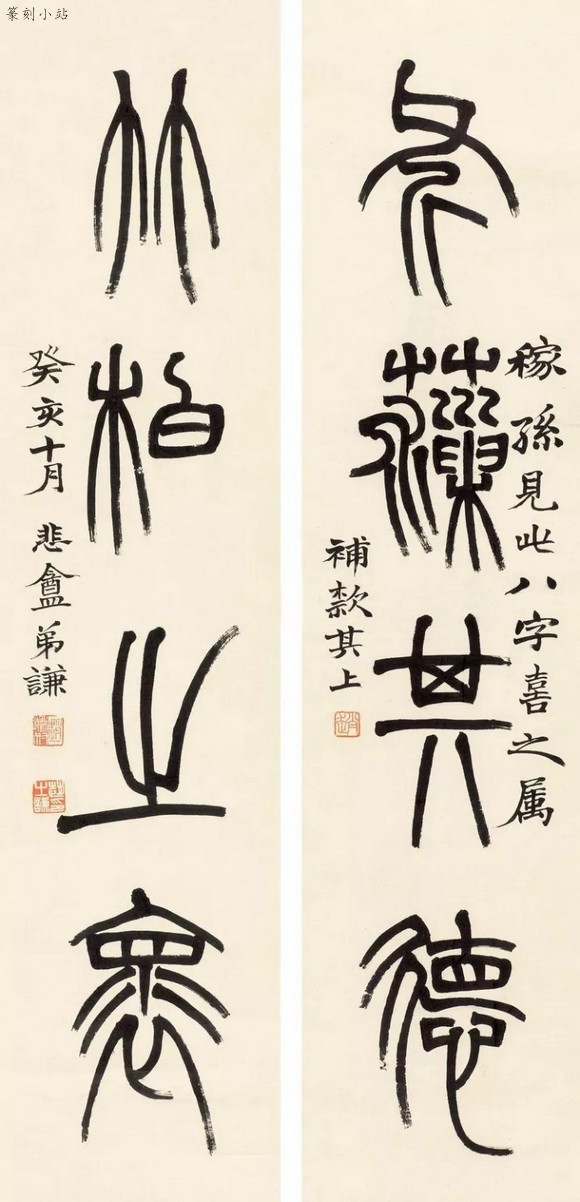 篆刻小站
其德
稼孫見此八字喜之属
補款其上
竹柏之裹
癸亥十月 悲盦弟謙